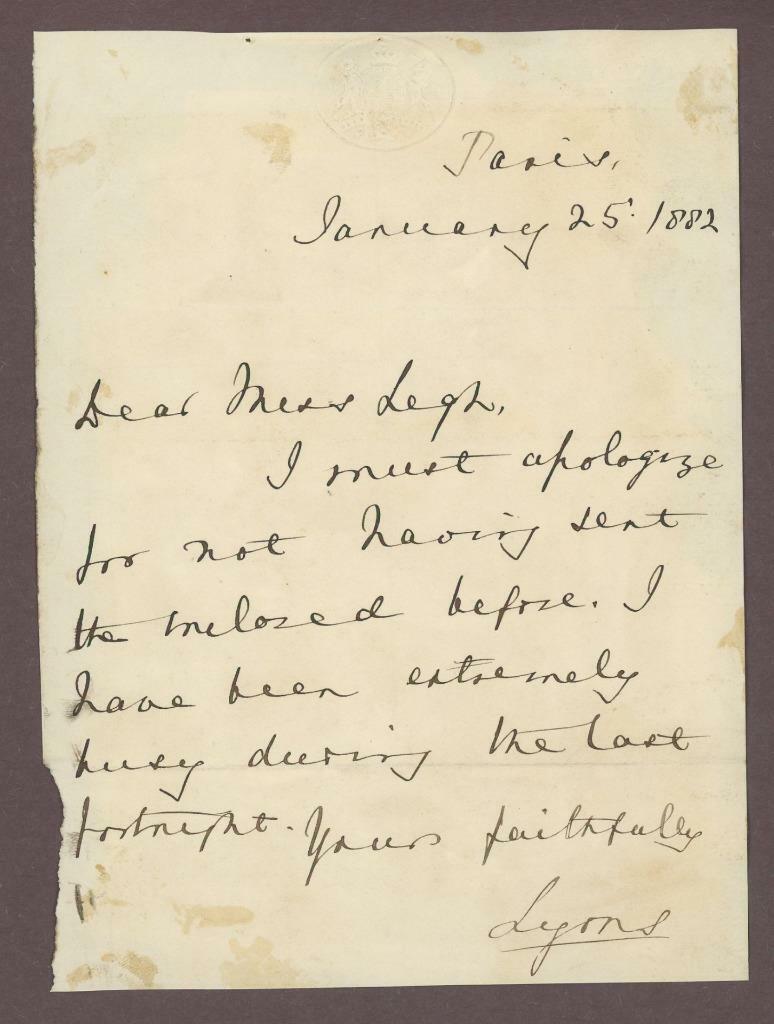 Paris,
January 25. 1882
Dear Miss Legh,
I must apologize
for not having sent
the inclosed before. I
have been extremely
busy during the last
fortnight. Yours faithfully
Lyons